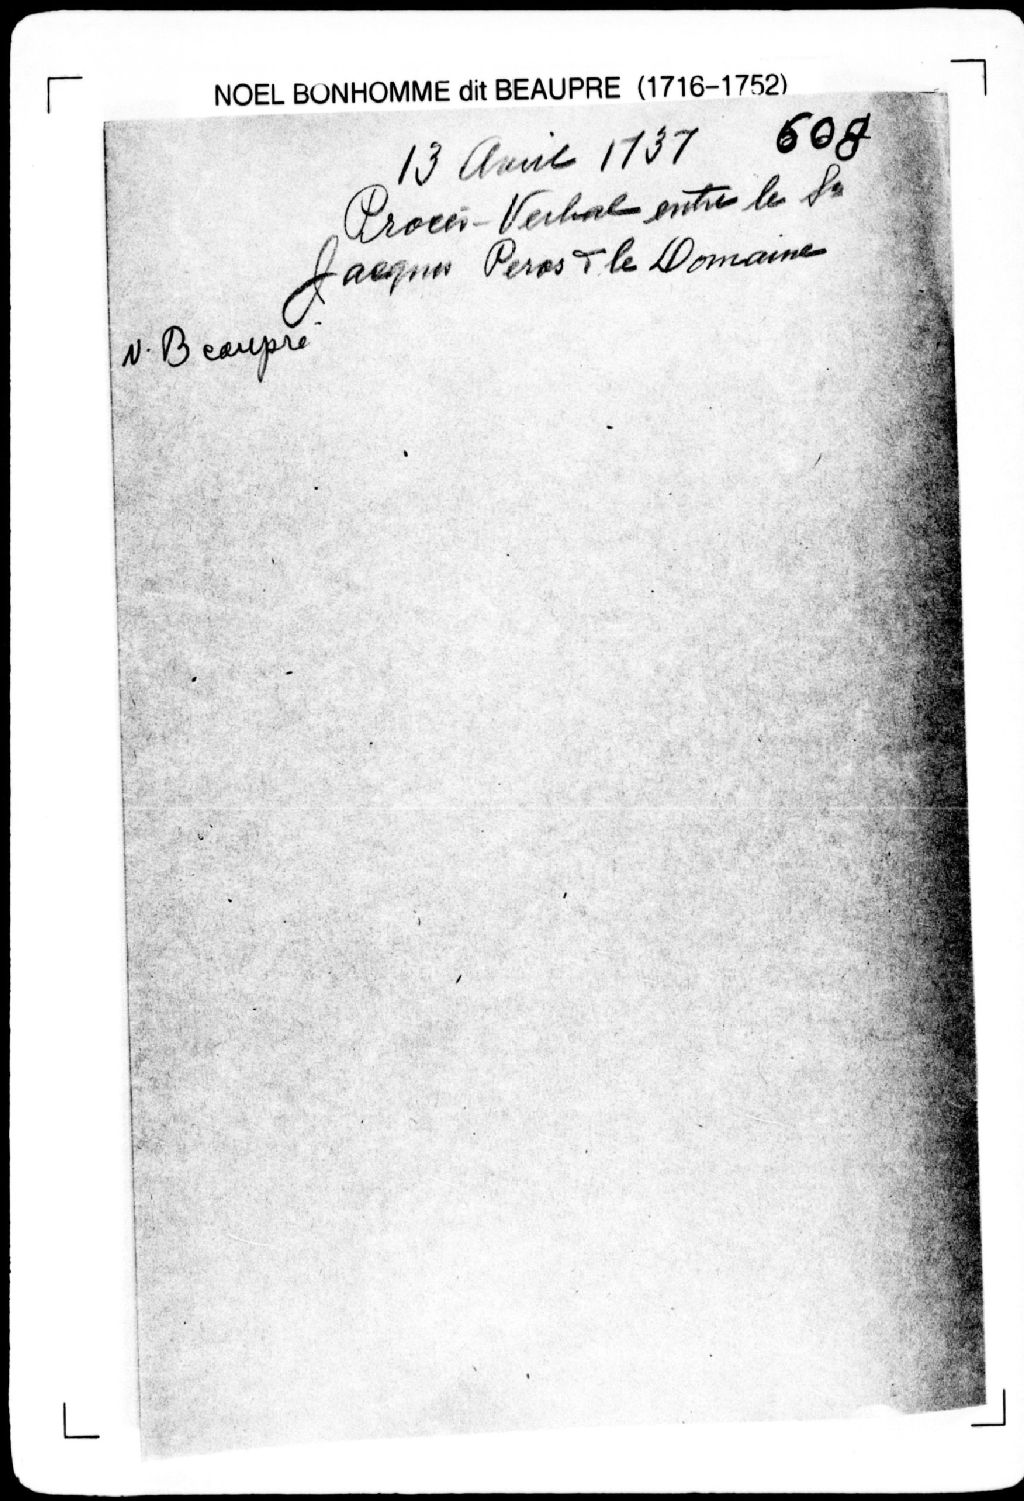 NOEL BONHOMME dit BEAUPRE (1716-1752)
13 Avril 1737 608
Procès-Verbal entre le Sr
Jacques Peros & le Domaine
N. Beaupré